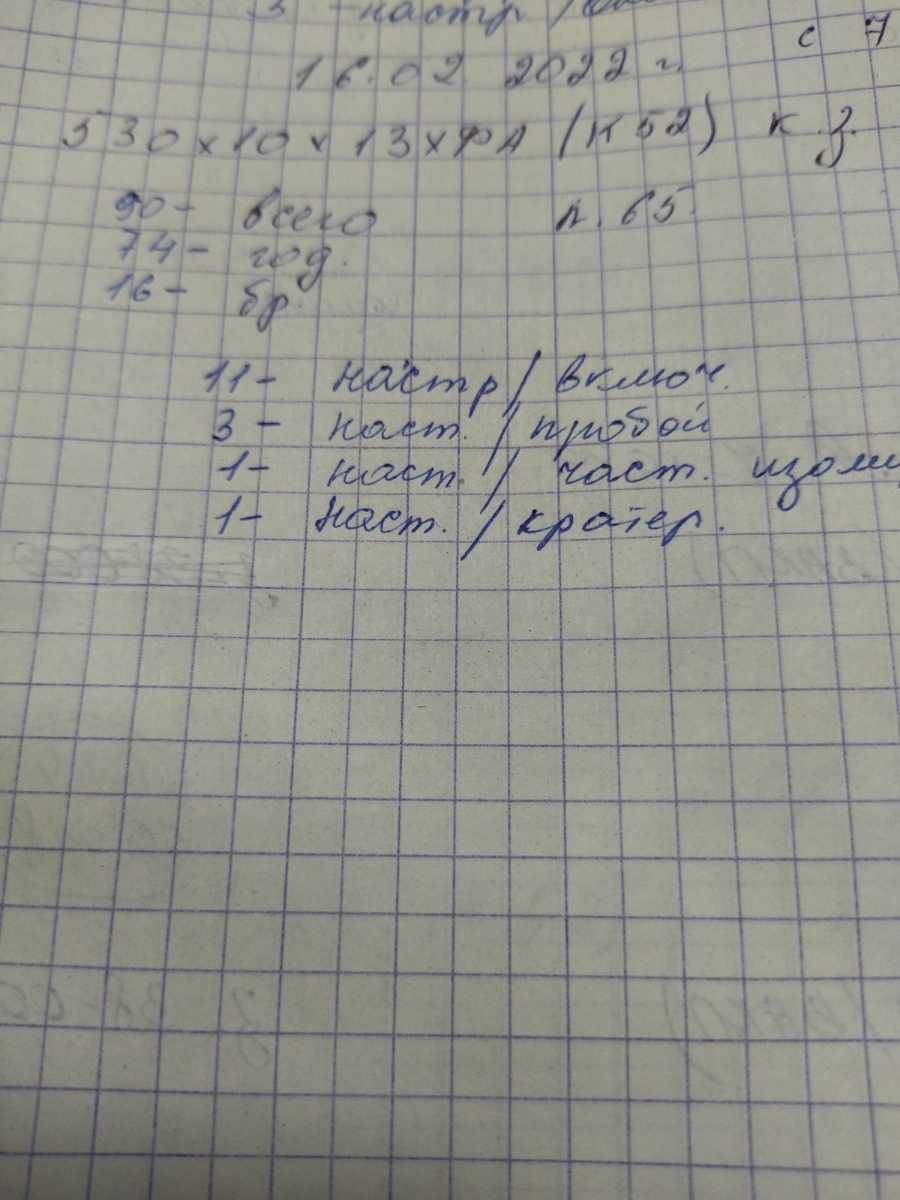 3 настр /
с 7
16.02 2022 г.
530 х 10 х 13 х ФА (К52) к.з.
90 - всего п. 65.
74 - год.
16 - бр
11 - настр / включ.
3 - наст. / пробой
1 - наст. / част. изоли
1 - Наст. / кратер.